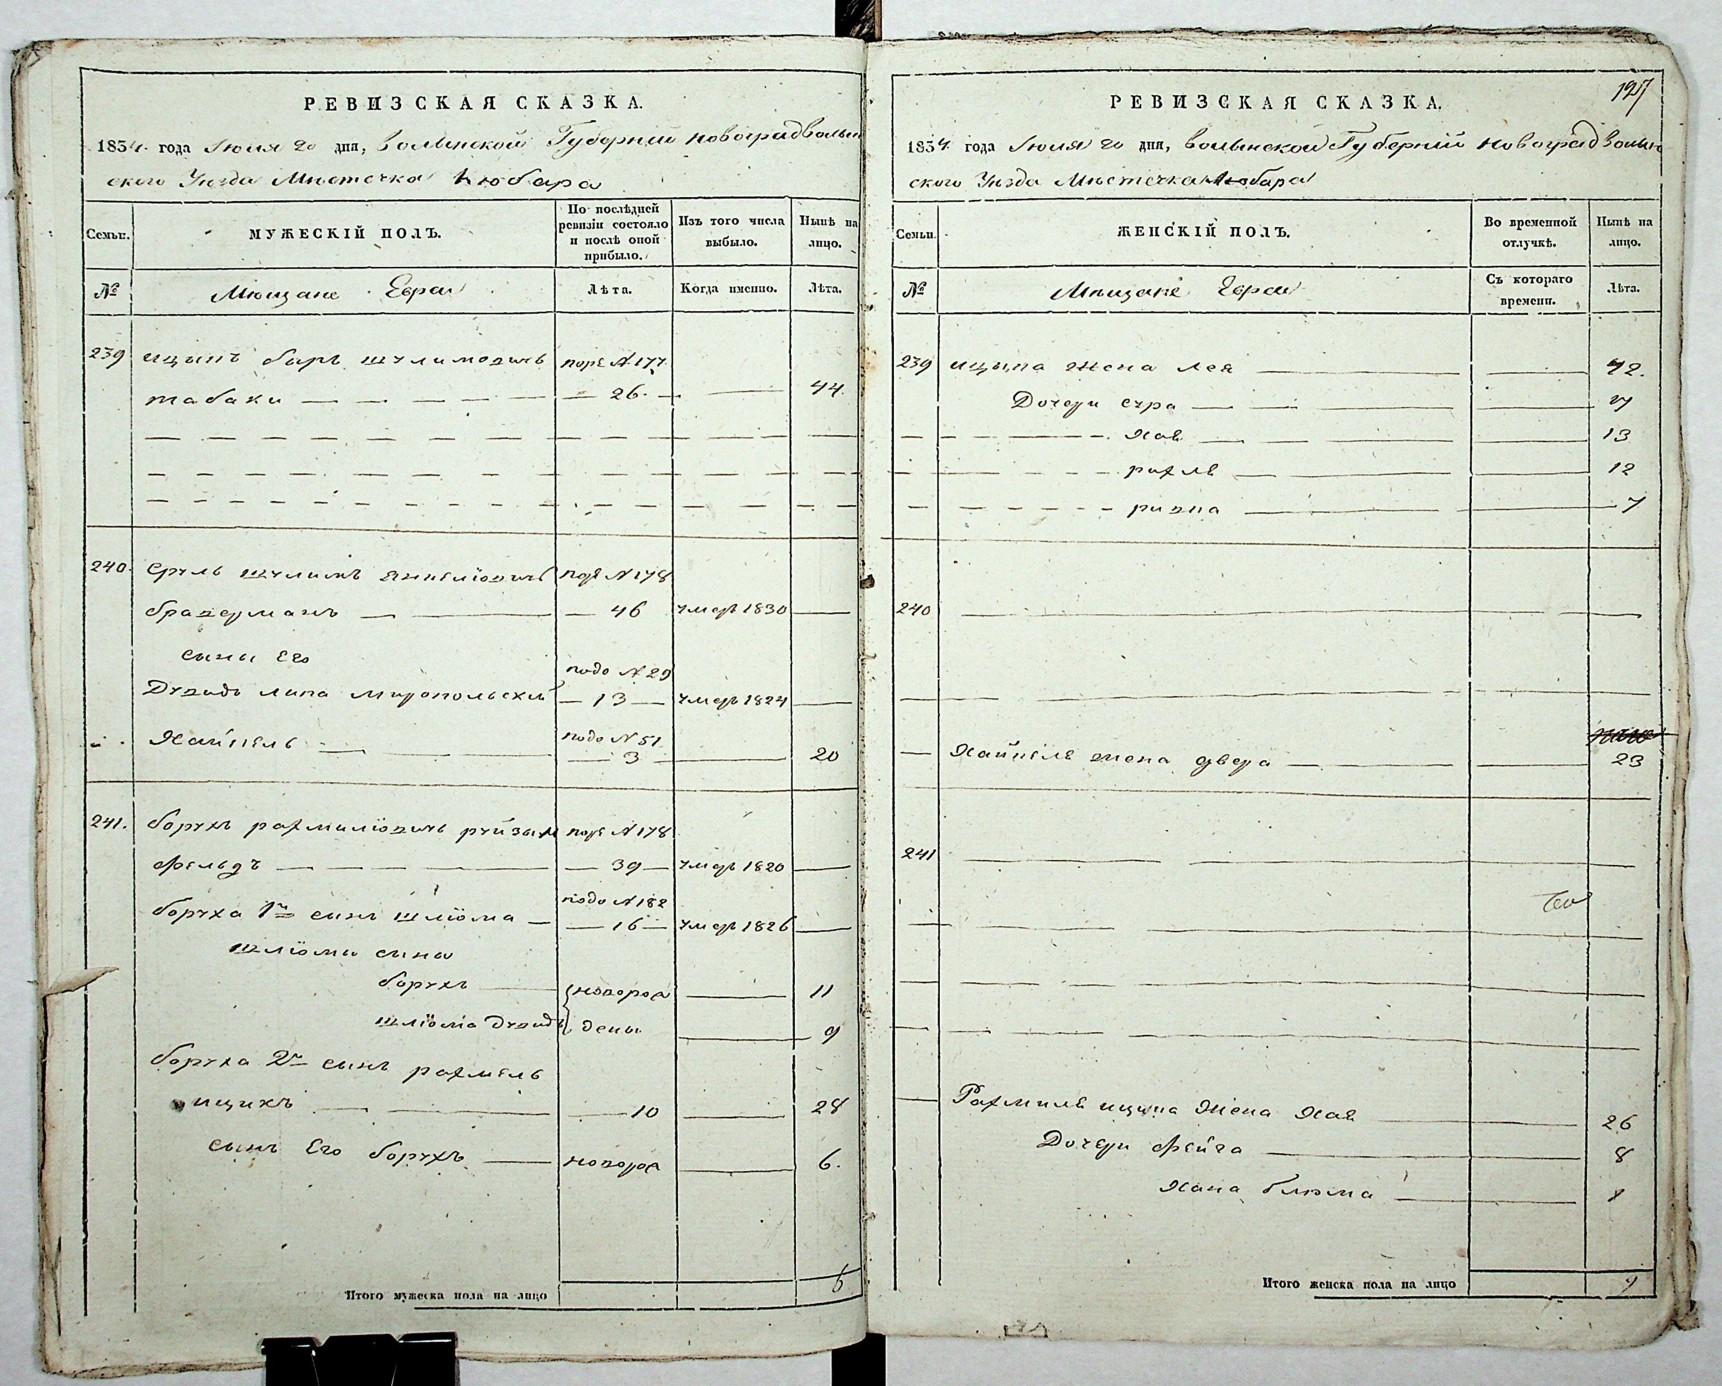 РЕВИЗСКАЯ СКАЗКА.
1834 года Июля 20 дня, Волынской Губернии Новоградволын
ского Уезда Местечка Любара
Семьи.
МУЖЕСКІЙ ПОЛЪ.
По послѣдней ревизіи состояло и послѣ оной прибыло.
Изъ того числа выбыло.
Нынѣ на лицо.
№
Мещане Евреи
Лѣта.
Когда именно.
Лѣта.
239 Ицыкъ Шулимовичъ
табаки 26 44
240
46 умеръ 1830
сыны Его
Дувидъ Липа Миропольскій 13 умеръ 1824
Хайкель 3 20
241. Борухъ Рахмиліовичъ
фельдъ 39 умеръ 1820
подъ № 182
Боруха 1й сынъ Шліома 16 умеръ 1826
Шліомы сыны
Борухъ новорож 11
Шліома Дувидъ дены 9
Боруха 2й сынъ Рахмель
Ицикъ 10 28
сынъ Его Борухъ новорож 6.
Итого мужеска пола на лицо 6
127
РЕВИЗСКАЯ СКАЗКА.
1834 года Июля 20 дня, Волынской Губерній Новоградволын
ского Уезда Местечка Любара
Семьи.
ЖЕНСКІЙ ПОЛЪ.
Во временной отлучкѣ.
Нынѣ на лицо.
№
Мещане Евреи
Съ котораго времени.
Лѣта.
239 Ицыка жена Лея 42.
Дочери Сура
Хая 13
Рахля 12
Ривка 7
240
Хайкеля жена Двера 23
241
Рахмиля Ицыка жена Хая 26
Дочери Фейга 8
Хана Блюма 1
Итого женска пола на лицо